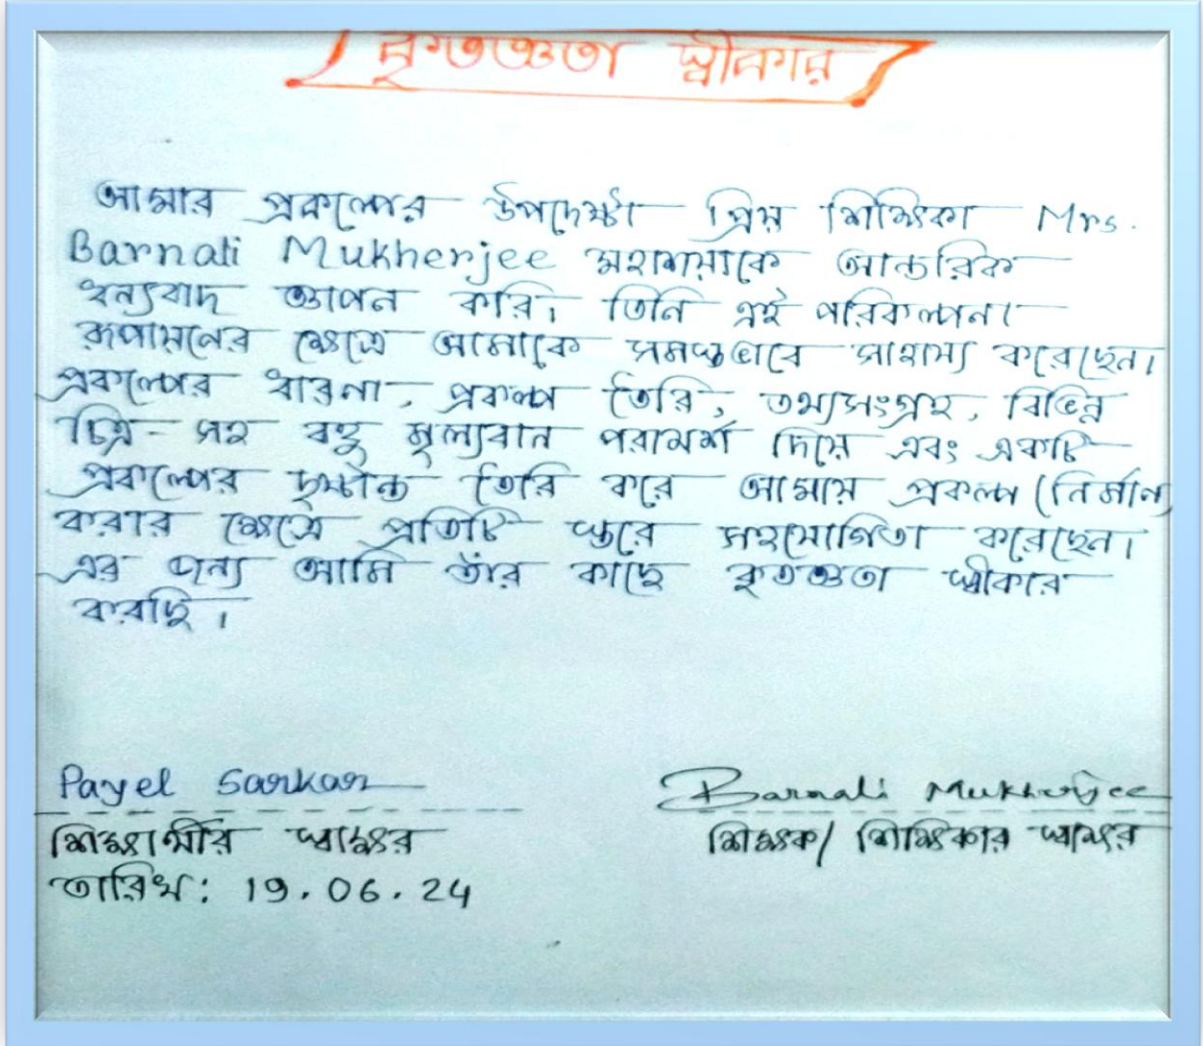 কৃতজ্ঞতা স্বীকার
আমার প্রকল্পের উপদেষ্টা প্রিয় শিক্ষিকা Mrs.
Barnali Mukherjee মহাশয়াকে আন্তরিক
ধন্যবাদ জ্ঞাপন করি। তিনি এই পরিকল্পনা
রূপায়নের ক্ষেত্রে আমাকে সমস্তভাবে সাহায্য করেছেন।
প্রকল্পের ধারনা, প্রকল্প তৈরি, তথ্যসংগ্রহ, বিভিন্ন
চিত্র-সহ বহু মূল্যবান পরামর্শ দিয়ে এবং একটি
প্রকল্পের দৃষ্টান্ত তৈরি করে আমায় প্রকল্প (নির্মান)
করার ক্ষেত্রে প্রতিটি স্তরে সহযোগিতা করেছেন।
এর জন্য আমি তাঁর কাছে কৃতজ্ঞতা স্বীকার
করছি।
Payel Sarkar Barnali Mukherjee
শিক্ষার্থীর স্বাক্ষর শিক্ষক/শিক্ষিকার স্বাক্ষর
তারিখ: 19.06.24